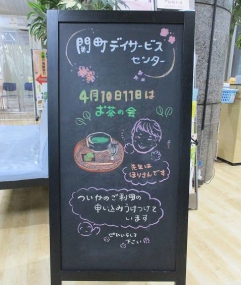 関町デイサービス
センター
4月10日11日は
お茶の会
先生は
ほりさんです
ついかのご利用の
申し込みうけつけて
います
ぜひいらして
下さい